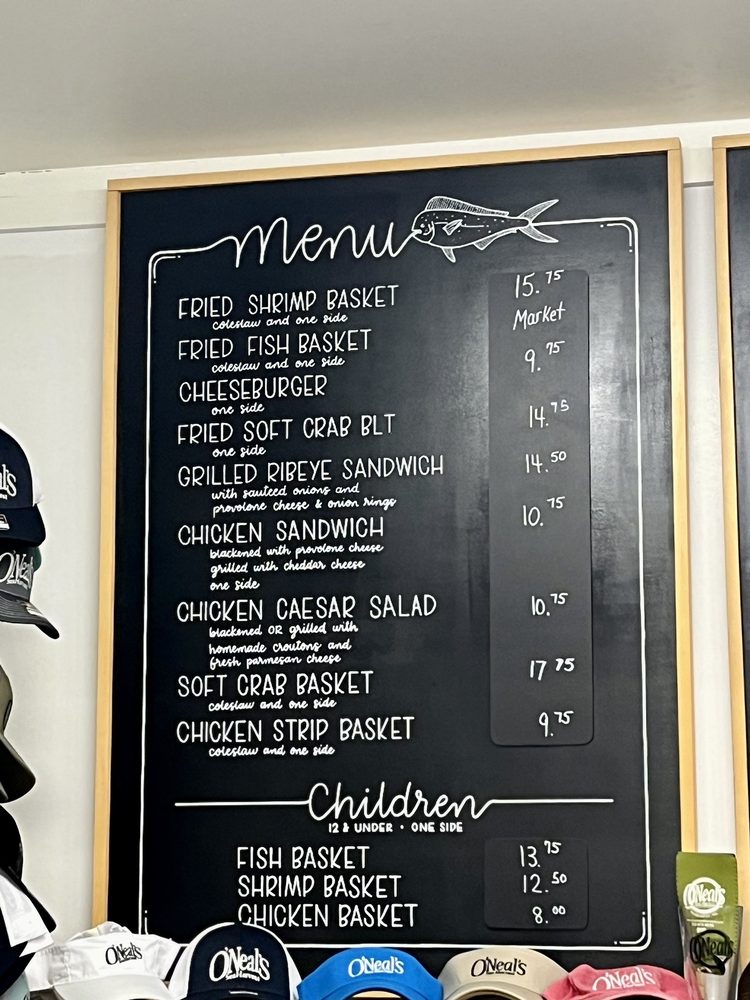 Menu
FRIED SHRIMP BASKET 15.75
coleslaw and one side
Market
FRIED FISH BASKET
coleslaw and one side
9.75
CHEESEBURGER
one side
FRIED SOFT CRAB BLT 14.75
one side
GRILLED RIBEYE SANDWICH 14.50
with sauteed onions and
provolone cheese & onion rings
10.75
CHICKEN SANDWICH
blackened with provolone cheese
grilled with cheddar cheese
one side
CHICKEN CAESAR SALAD 10.75
blackened OR grilled with
homemade croutons and
fresh parmesan cheese
SOFT CRAB BASKET 17 75
coleslaw and one side
CHICKEN STRIP BASKET 9.75
coleslaw and one side
Children
12 & UNDER • ONE SIDE
FISH BASKET 13.75
SHRIMP BASKET 12.50
CHICKEN BASKET 8.00
O'Neal's
O'Neal's
O'Neal's
O'Neal's
O'Neal's
O'Neal's